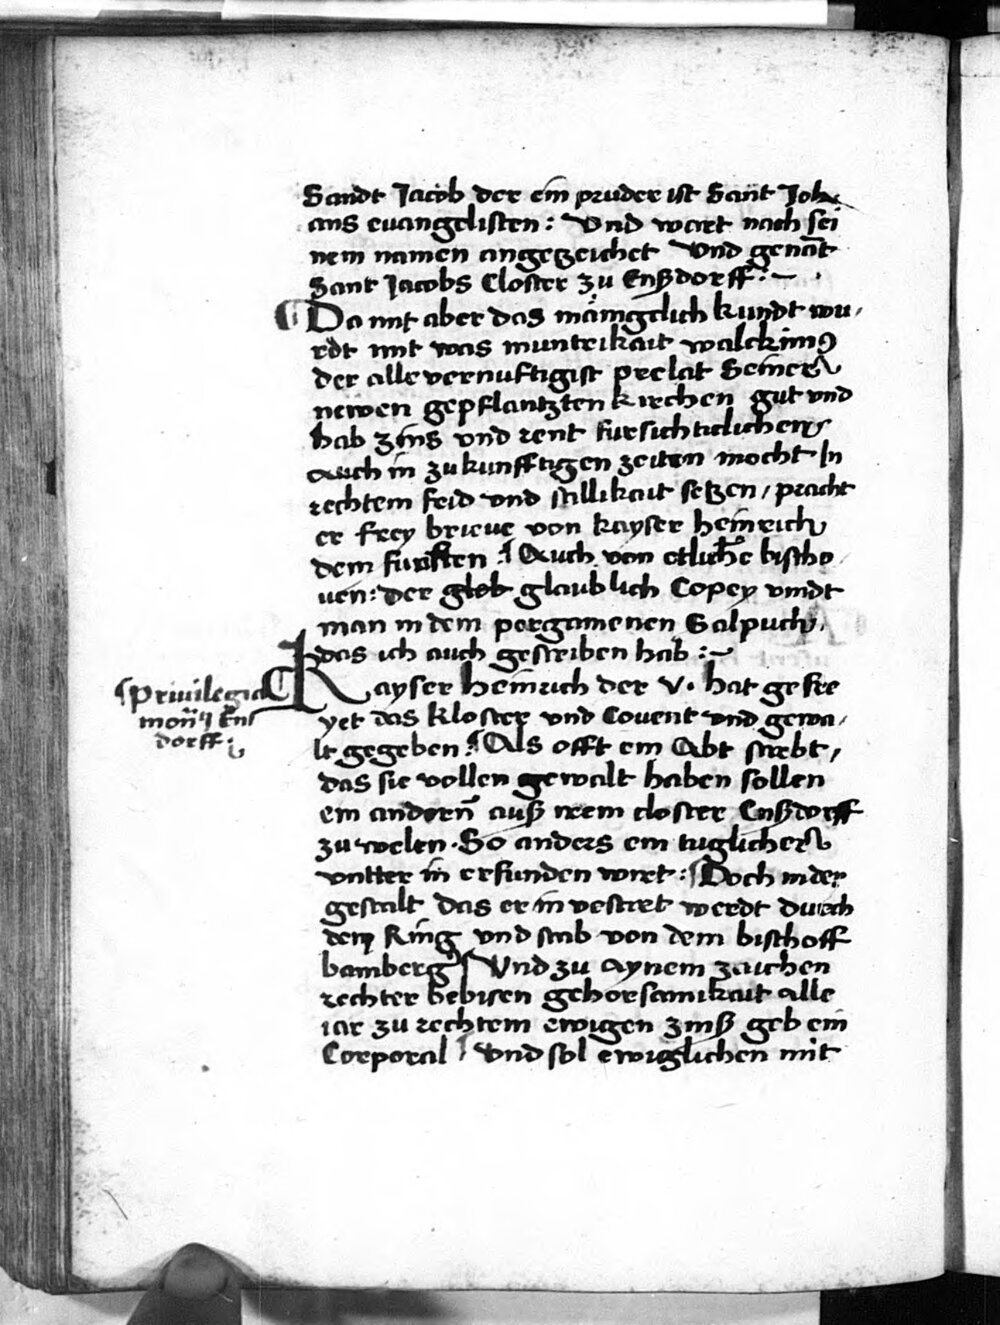 Sandt Jacob der ein pruder ist Sant Joh
ans euangelisten : Vnd wart nach sei
nem namen angezeichet Vnd genāt
Sant Jacobs Closter zu Enßdorff :~
¶ Da mit aber das mānigclich kundt wu,
rdt mit was munterikait walckinus
der alle vernuftigist prelat Seiner
newen gepflantzten kirchen gut vnd
hab zins vnd rent fursichticlichen
Auch in zukunfftigen zeiten mocht In
rechtem frid vnd stillikait setzen / pracht
er frey brieue von kayser heinrich
dem funften : ¶ Auch von etlichē bischo
uen : der glob glaublich Copey vindt
man in dem pergamenen Salpuch,
das ich auch geschriben hab :~
¶ Kayser heinrich der V. hat gefre
yet das kloster vnd Couent vnd gewa,
lt gegeben : ¶ Als offt ein Abt sterbt,
das sie vollen gewalt haben sollen
ein andern auß irem closter Enßdorff
zu welen . So anders ein tuglicher
vntter in erfunden wirt : ¶ Doch in der
gestalt das er in vestiret werdt durch
den Ring vnd stab von dem bischoff
bamberg ¶ Vnd zu aynem zaichen
rechter bebisen gehorsamikait alle
iar zu rechtem ewigen zinß geb ein
Corporal ¶ Vnd sol ewiglichen mit
¶ Priuilegia
dorff :